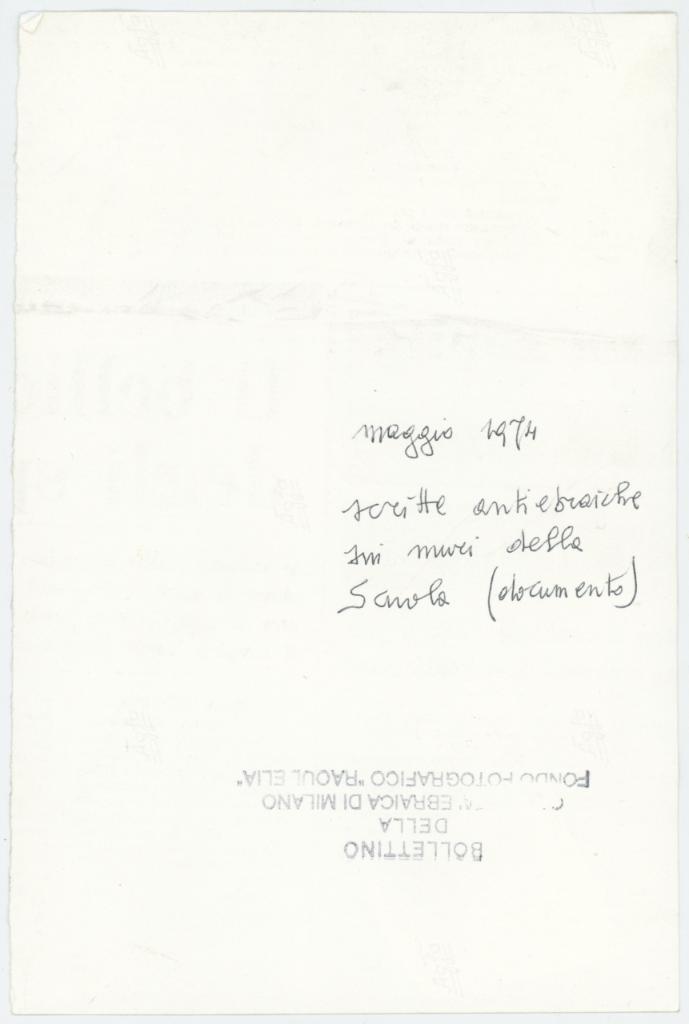 maggio 1974
scritte antiebraiche
sui muri della
Scuola (documento)
BOLLETTINO
DELLA
EBRAICA DI MILANO
FONDO FOTOGRAFICO "RAOUL ELIA"